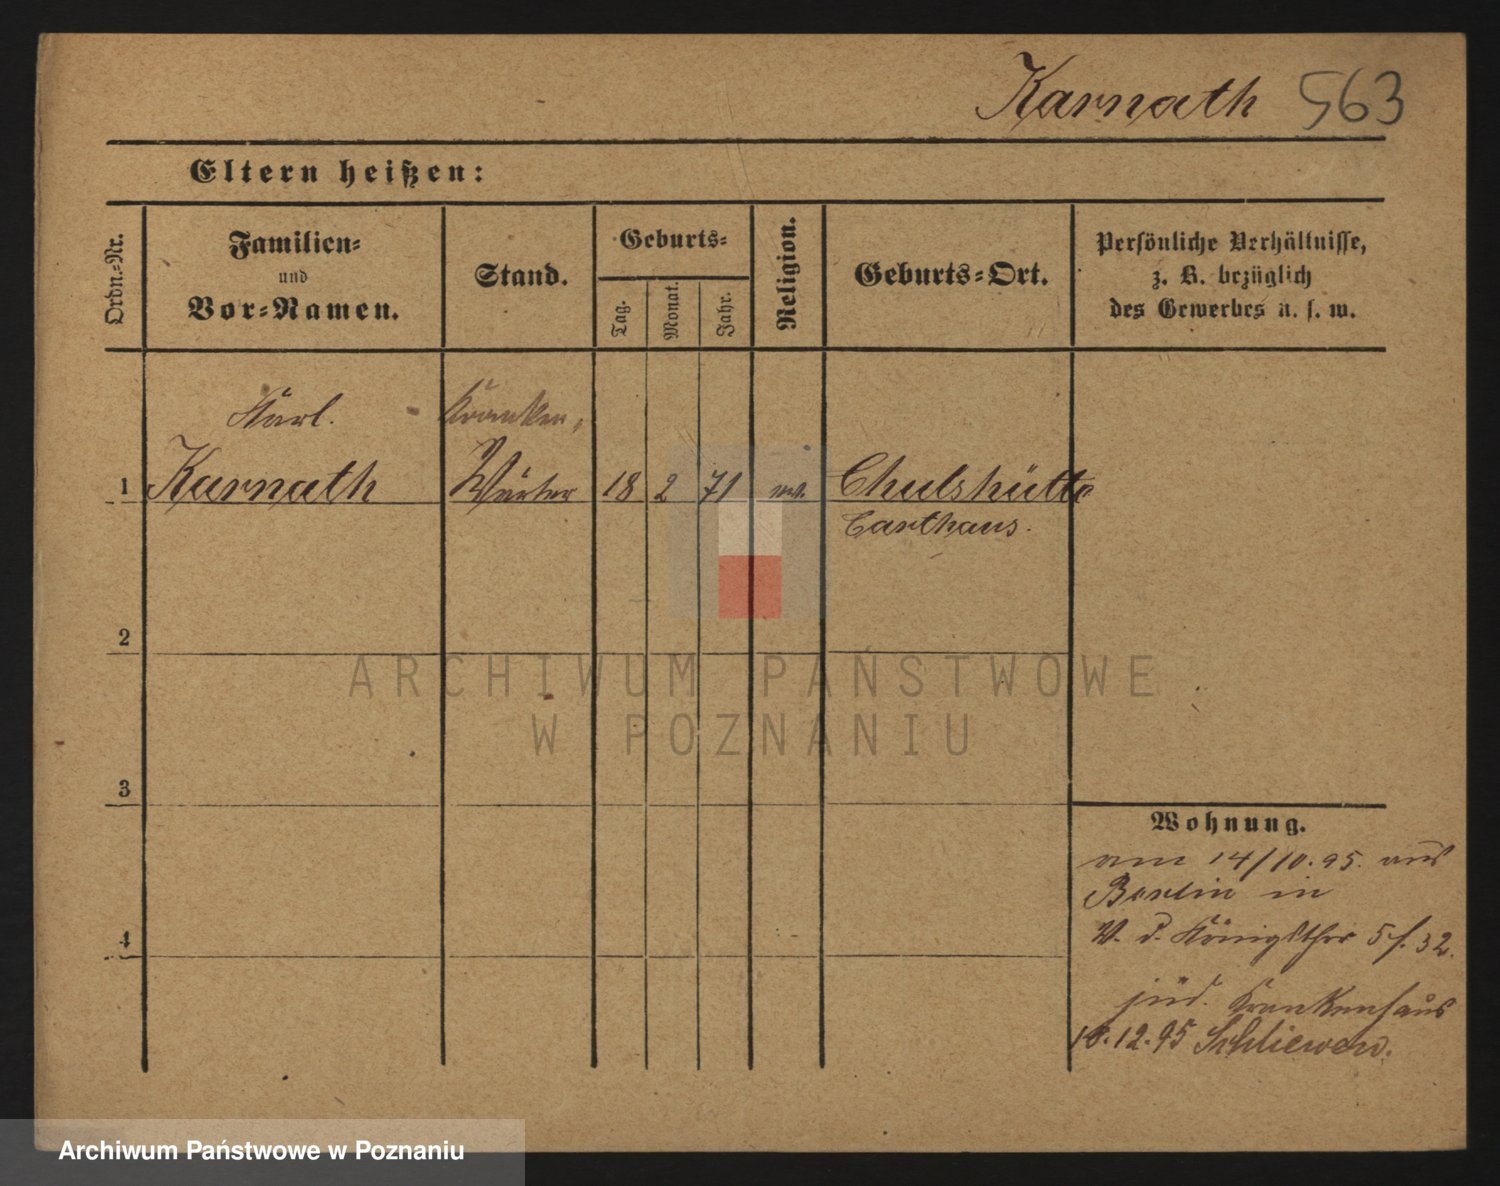 Karnath 563
Eltern heißen:
Ordn.-Nr.
Familien-
und
Vor-Namen.
Stand.
Geburts-
Tag.
Monat.
Jahr.
Religion.
Geburts-Ort.
Persönliche Verhältnisse,
z. B. bezüglich
des Gewerbes u. s. w.
Karl. Kranken-
1 Karnath Wärter 18 2 71 ev. Chulshütte
Carthaus.
2
ARCHIWUM PAŃSTWOWE
W POZNANIU
3
Wohnung.
am 14/10.95. aus
Berlin in
V. d. Königsthor 5 f. 32.
4
jüd. Krankenhaus
12.95 Schliewen.
Archiwum Państwowe w Poznaniu